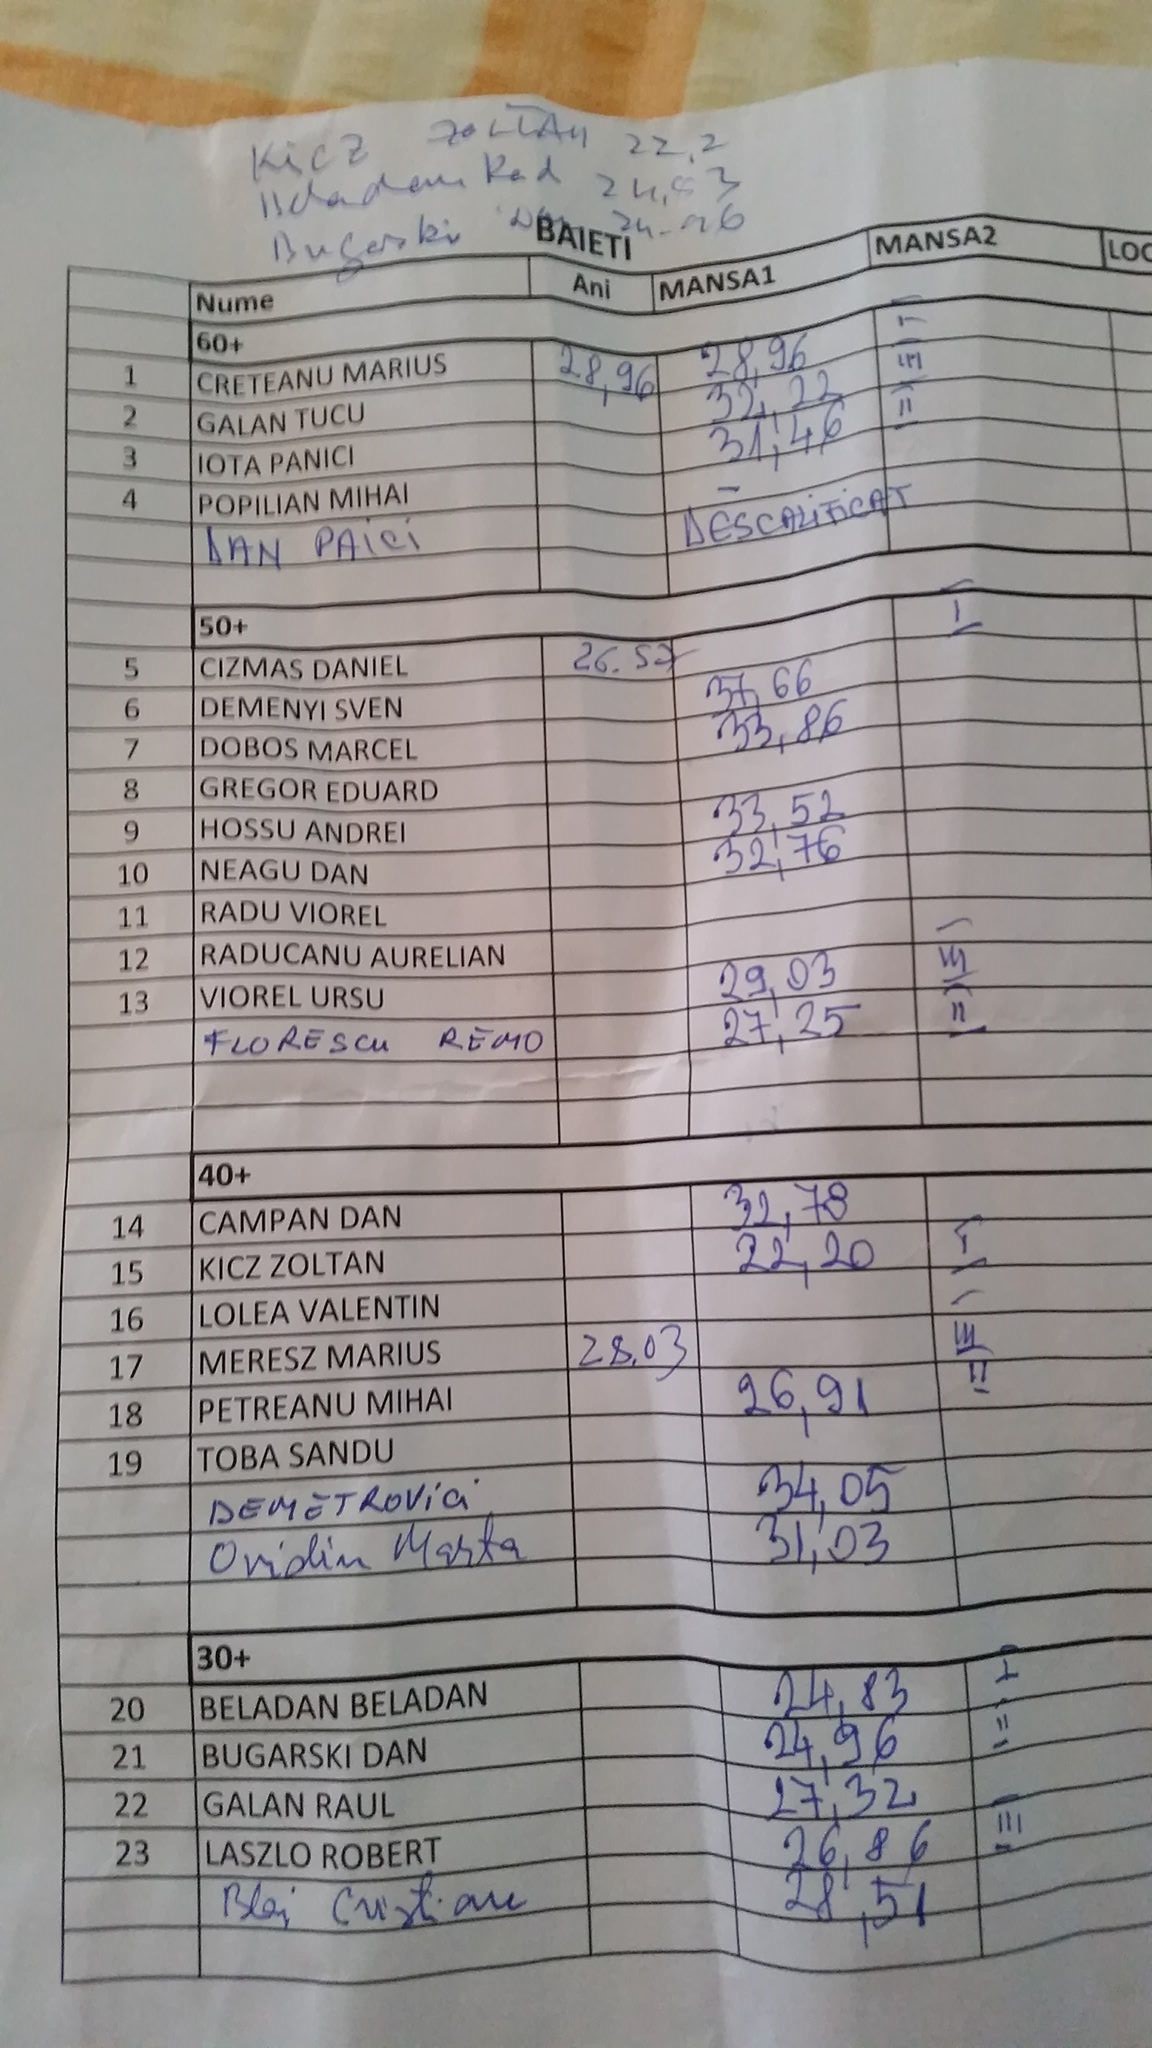 KICZ ZOLTAN 22,2
Beladan 24,83
Bugarski Dan 24.96
BAIETI
Nume Ani MANSA1 MANSA2 LOC
60+
1 CRETEANU MARIUS 28,96 28,96 I
2 GALAN TUCU 32,22 III
3 IOTA PANICI 31,46 II
4 POPILIAN MIHAI –
DAN PAICI DESCALIFICAT
50+
5 CIZMAS DANIEL 26.52 I
6 DEMENYI SVEN 37,66
7 DOBOS MARCEL 33,86
8 GREGOR EDUARD
9 HOSSU ANDREI 33,52
10 NEAGU DAN 32,76
11 RADU VIOREL
12 RADUCANU AURELIAN
13 VIOREL URSU 29,03 III
FLORESCU REMO 27,25 II
40+
14 CAMPAN DAN 32,78
15 KICZ ZOLTAN 22,20 I
16 LOLEA VALENTIN
17 MERESZ MARIUS 28.03 III
18 PETREANU MIHAI 26,91 II
19 TOBA SANDU
DEMETROVICI 34,05
Ovidiu Marta 31,03
30+
20 BELADAN BELADAN 24,83 I
21 BUGARSKI DAN 24,96 II
22 GALAN RAUL 27,32
23 LASZLO ROBERT 26,86 III
Blaj Cristian 28,51